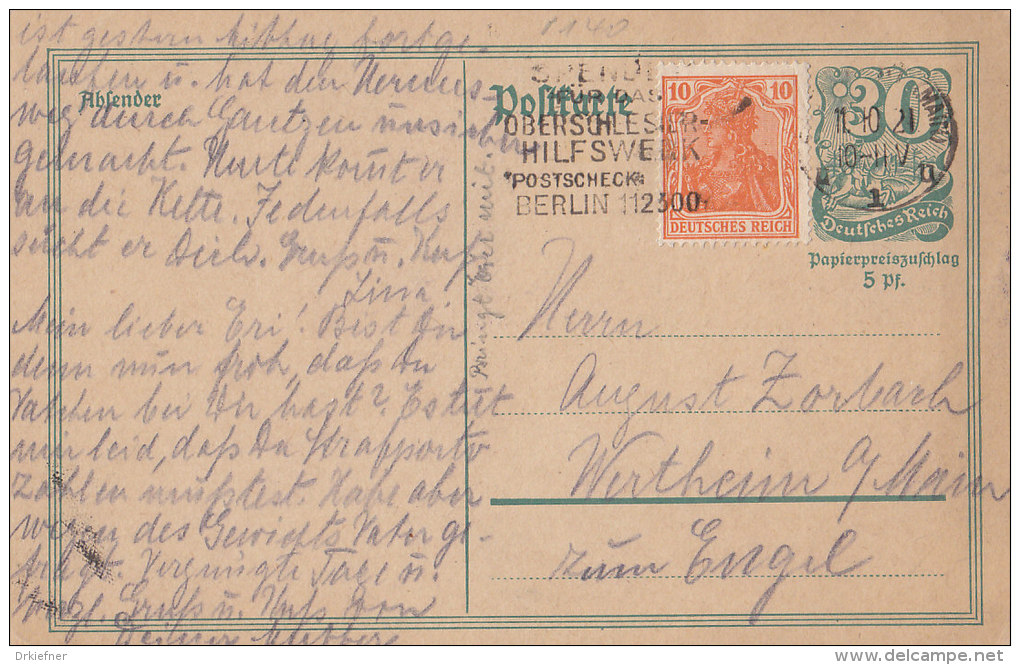 1140
ist gestern Mittag fortge-
laufen u. hat den
weg durch
gebracht. Heute kommt er
an die Kette. Jedenfalls
sucht er Dich. Gruß u. Kuß
Lina
Mein lieber Eri! Bist Du
denn nun froh, daß Du
bei Dir hast? Es tut
mir leid, daß Du Strafporto
zahlen mußtest. Habe aber
wegen des Gewichts Vater ge-
fragt. Vergnügte Tage u.
herzl. Gruß u. Kuß von
Deiner Mutter
Absender
Postkarte
SPENDET
FÜR DAS
OBERSCHLESIER-
HILFSWERK
*POSTSCHECK:
BERLIN 112300
10 10
DEUTSCHES REICH
20
11.10 21
10-11 V
1
Deutsches Reich
Papierpreiszuschlag
5 Pf.
Herrn
August Zorbach
Wertheim a/Main
zum Engel
Drkiefner
www.delcampe.net